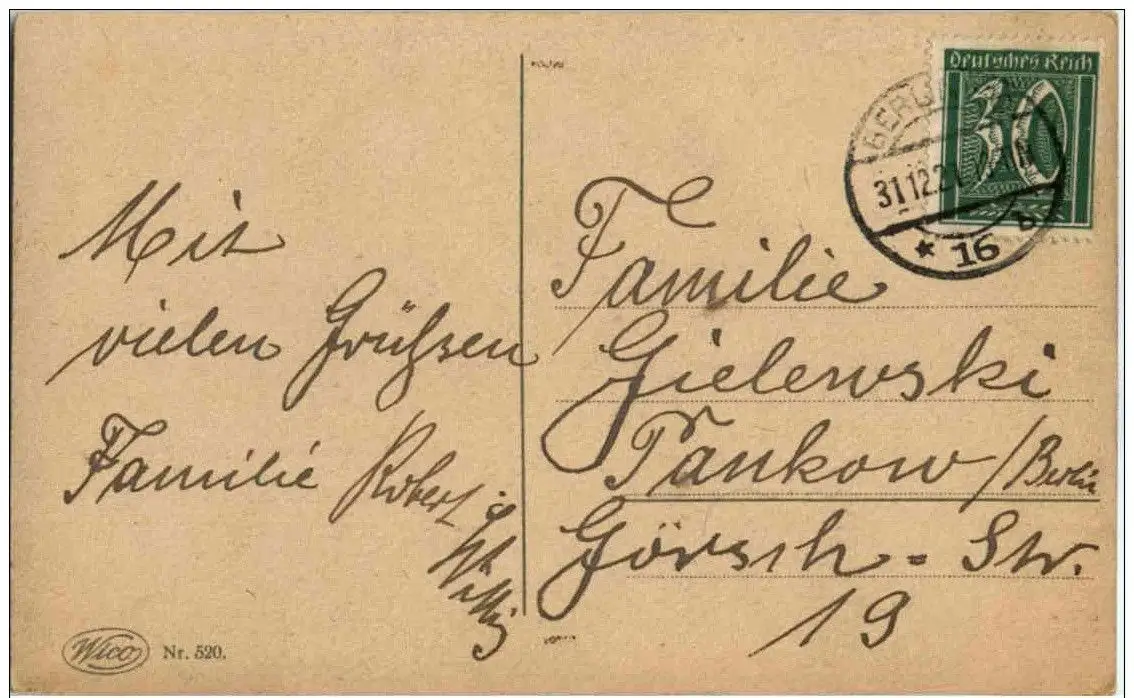 Mit
vielen Grüßen
Familie Robert
Familie
Gielewski
Pankow / Berlin
Görsch = Str.
19
Deutsches Reich
30
31.12.21
* 16 b
Wico Nr. 520.